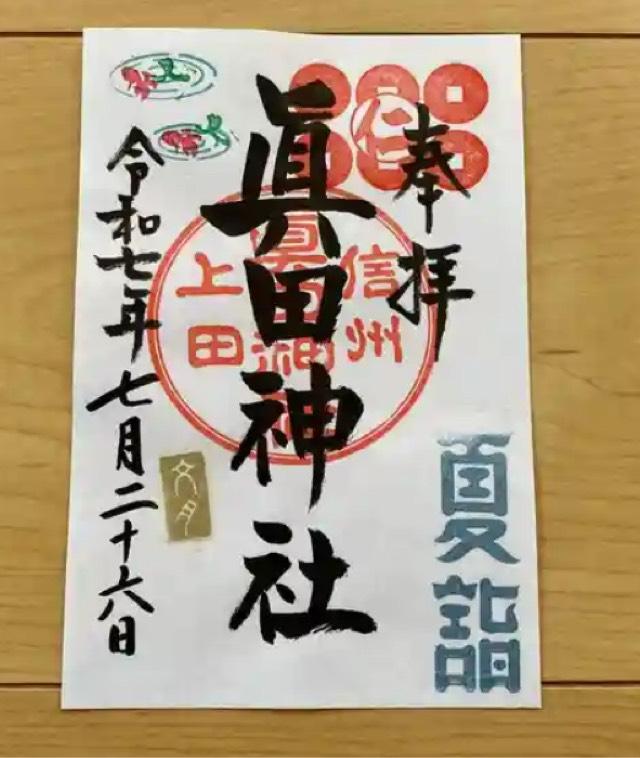 奉拝
仁
夏詣
眞田神社
信州
眞田神社
上田
文月
令和七年七月二十六日